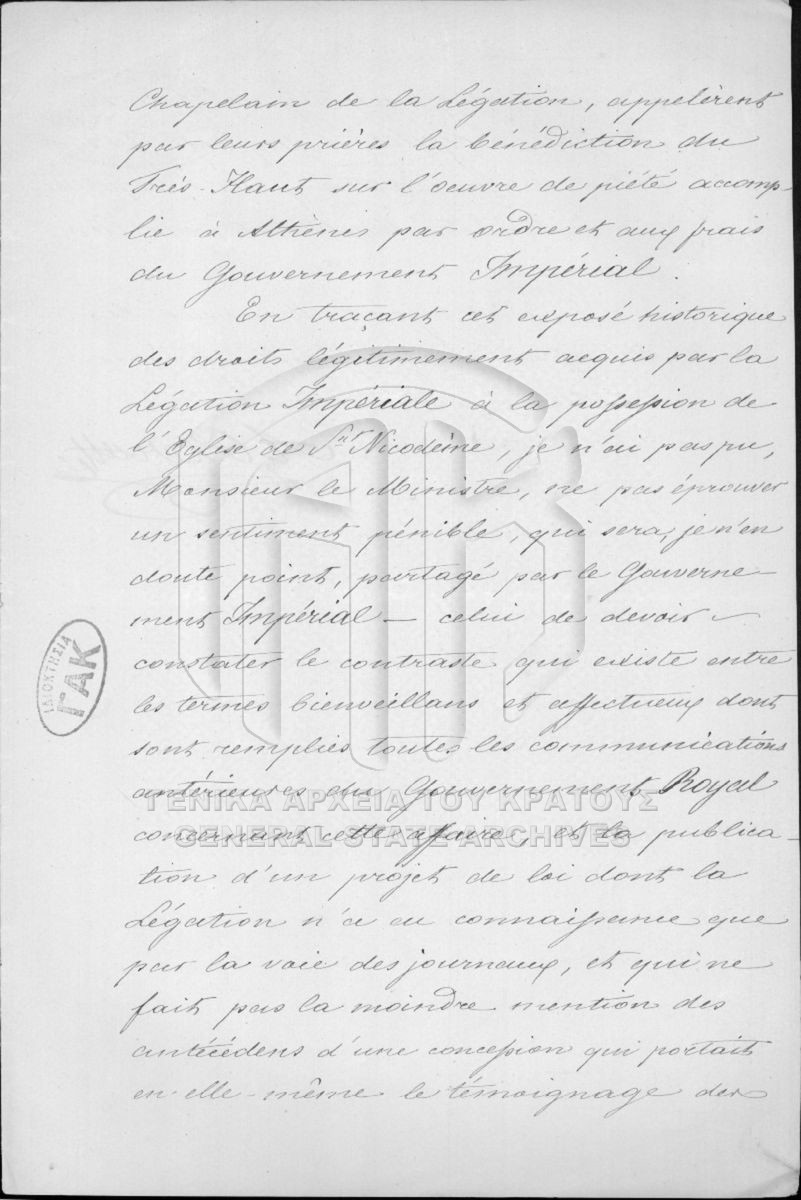 Chapelain de la Légation, appelèrent
par leurs prières la bénédiction du
Très-Haut sur l'oeuvre de piété accomp-
lie à Athènes par ordre et aux frais
du Gouvernement Impérial.
En traçant cet exposé historique
des droits légitimement acquis par la
Légation Impériale à la possession de
l'Eglise de Snt Nicodème, je n'ai pas pu,
Monsieur le Ministre, ne pas éprouver
un sentiment pénible, qui sera, je n'en
doute point, partagé par le Gouverne-
ment Impérial — celui de devoir
constater le contraste qui existe entre
les termes bienveillans et affectueux dont
sont remplies toutes les communications
antérieures du Gouvernement Royal
concernant cette affaire, et la publica-
tion d'un projet de loi dont la
Légation n'a eu connaissance que
par la voie des journaux, et qui ne
fait pas la moindre mention des
antécédens d'une concession qui portait
en elle-même le témoignage des
ΙΔΙΟΚΤΗΣΙΑ
ΓΑΚ
ΓΕΝΙΚΑ ΑΡΧΕΙΑ ΤΟΥ ΚΡΑΤΟΥΣ
GENERAL STATE ARCHIVES